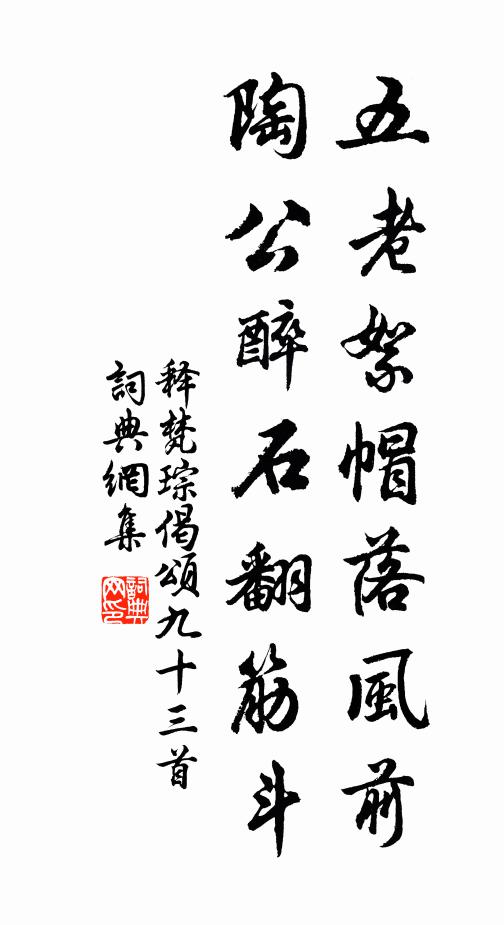 五老絮帽落風前
陶公醉石翻筋斗
释梵琮偈頌九十三首
詞典網集
詞典
网印